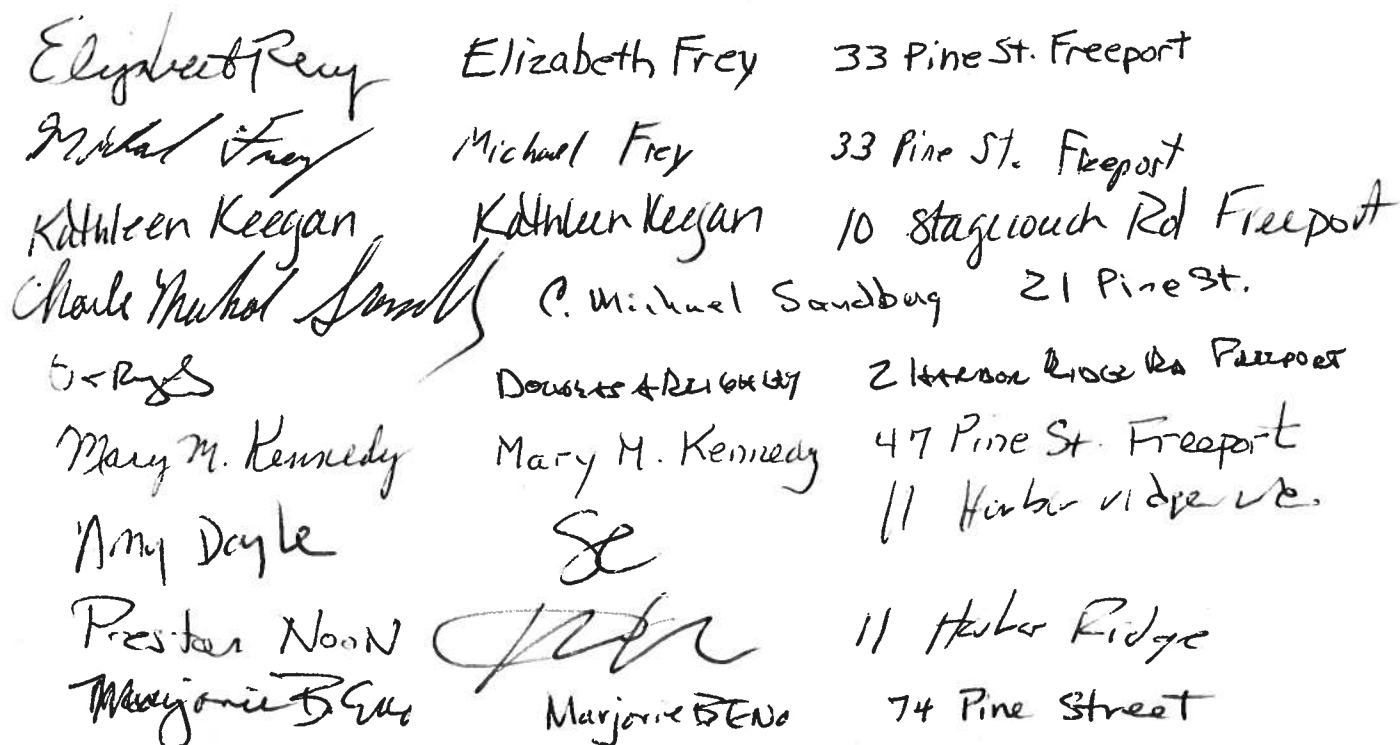 Elizabeth Frey Elizabeth Frey 33 Pine St. Freeport
Michael Frey Michael Frey 33 Pine St. Freeport
Kathleen Keegan Kathleen Keegan 10 Stagecouch Rd Freeport
Charles Michael C. Michael Sandburg 21 Pine St.
Douglas A Reighley 2 Harbor Ridge Rd Freeport
Mary M. Kennedy Mary M. Kennedy 47 Pine St. Freeport
Amy Doyle 11 Harbor ridge
Preston NooN 11 Harbor Ridge
Marjorie B. Eno Marjorie B ENo 74 Pine Street